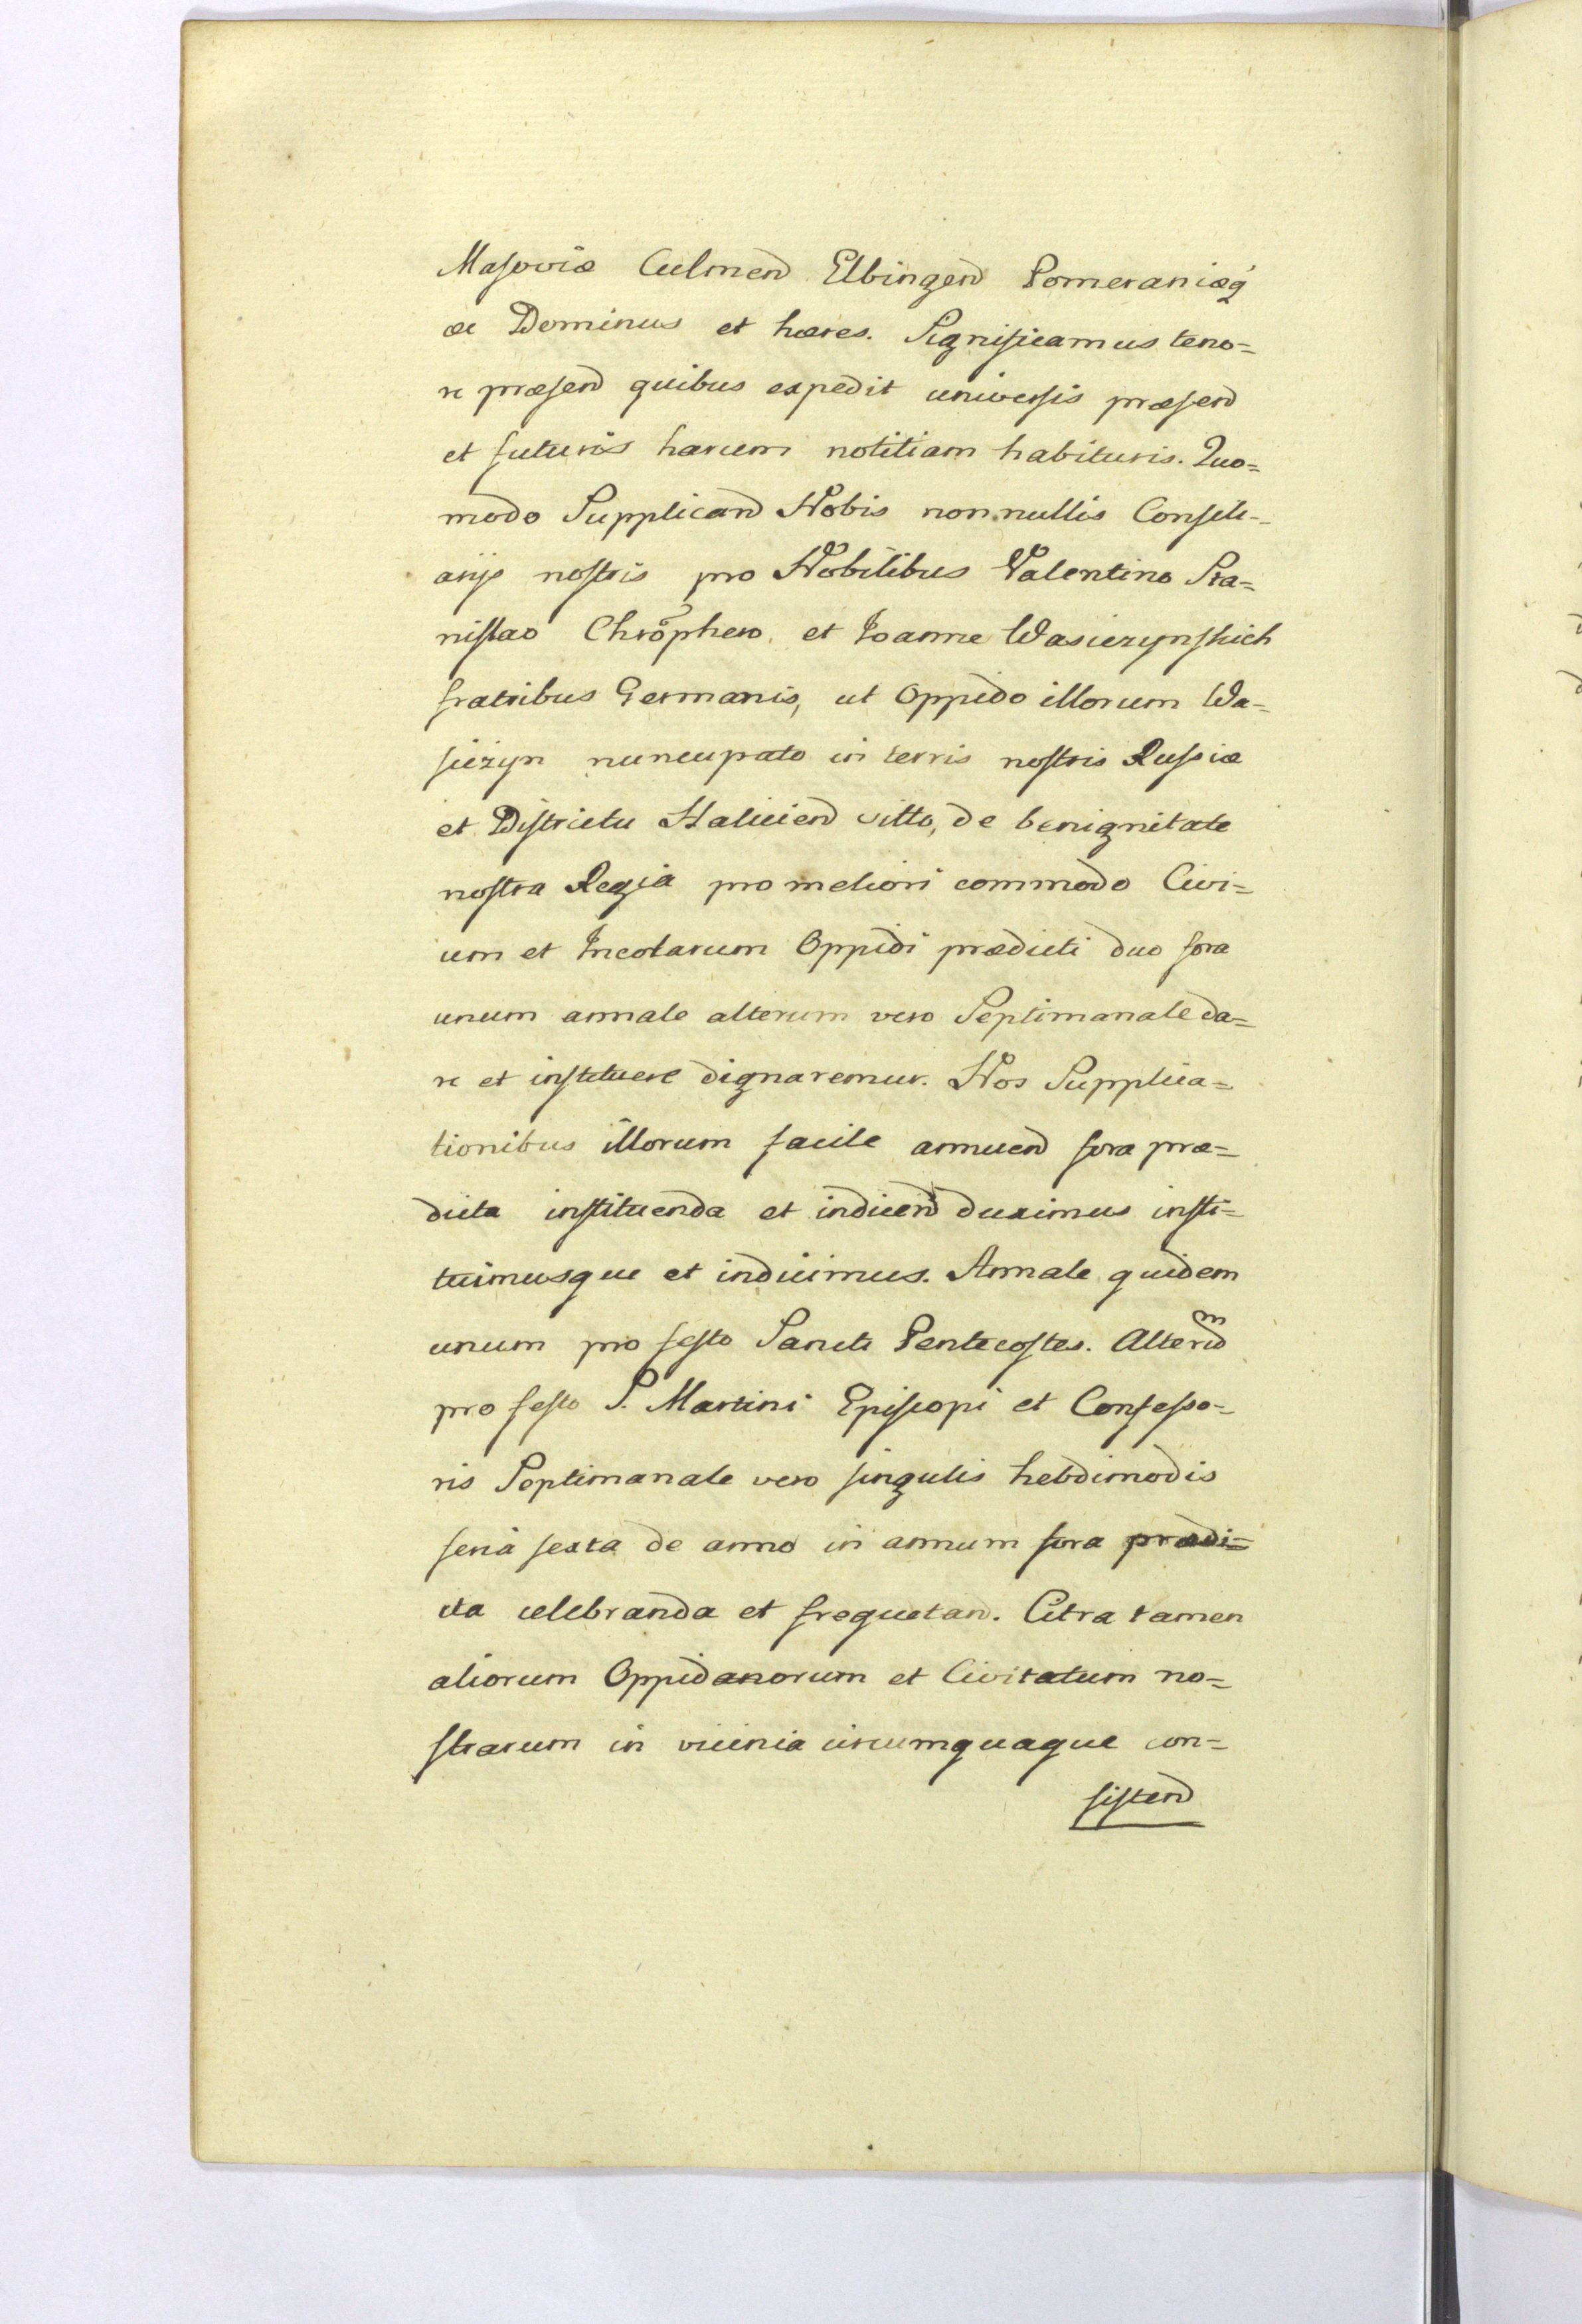 Masoviæ Culmend Elbingend Pomeraniæq́
æ Dominus et hæres. Significamus teno=
re præsend quibus expedit universis præsend
et futuris harum notitiam habituris. Quo=
modo Supplicand Nobis nonnullis Consili=
arijs nostris pro Nobilibus Valentino Sta=
nislao Chrõphero et Joanne Wasiczynskich
fratribus Germanis, ut Oppido illorum Wa=
siczyn nuncupato in terris nostris Russiæ
et Districtu Haliciend sitto, de benignitate
nostra Regia pro meliori commodo Civi=
um et Incolarum Oppidi prædicti duo fora
unum annale alterum vero Septimanale da=
re et instituere dignaremur. Nos Supplica=
tionibus illorum facile annuend fora præ=
dicta instituenda et indicend duximus insti=
tuimusque et indicimus. Annale quidem
unum pro festo Sancti Pentecostes. Alterũm
pro festo S. Martini Episcopi et Confesso=
ris Septimanale vero singulis hebdimodis
feria sexta de anno in annum fora prædi=
cta celebranda et frequetan. Citra tamen
aliorum Oppidanorum et Civitatum no=
strarum in vicinia circumquaque con=
sistend